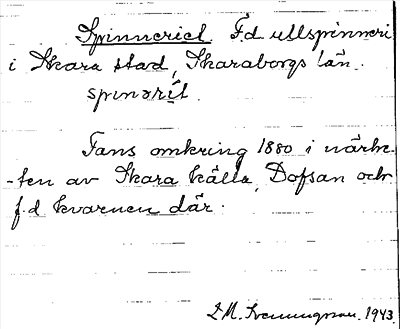 Spinneriet. F.d ullspinneri
i Skara stad, Skaraborgs län.
spinərı́t.
Fans omkring 1880 i närhe-
-ten av Skara källa, Dofsan och
f.d kvarnen där.
I.M. Svenungsson. 1943.